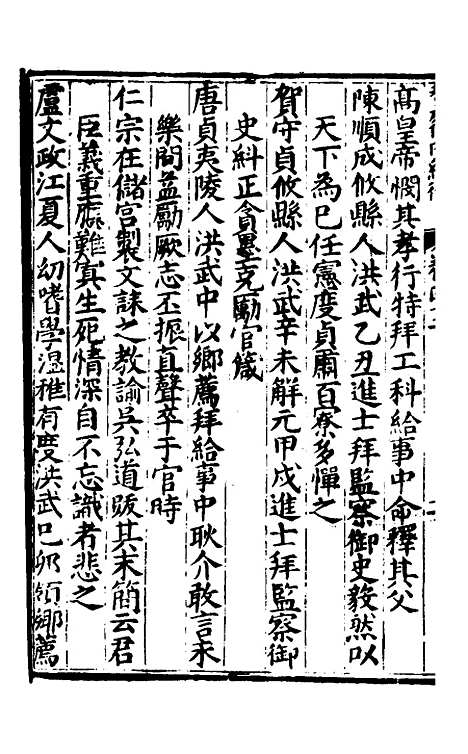 高皇帝憫其孝行特拜工科給事中命釋其父
陳順成攸縣人洪武乙丑進士拜監察御史毅然以
天下為己任憲度貞肅百寮多憚之
賀守貞攸縣人洪武辛未解元甲戍進士拜監察御
史糾正貪墨克勵官箴
唐貞夷陵人洪武中以鄉薦拜給事中耿介敢言未
樂問益勵厥志丕振直聲卒于官時
仁宗在儲宮製文誄之教諭吳弘道䟦其末簡云君
臣義重應難寘生死情深自不忘識者悲之
盧文政江夏人幼嗜學湿雅有度洪武己卯領鄉薦